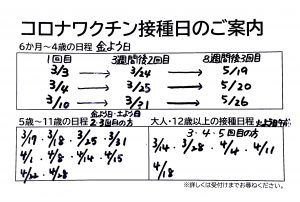 コロナワクチン接種日のご案内
6か月～4歳の日程 金よう日
1回目 3週間後2回目 8週間後3回目
3/3 → 3/24 → 5/19
3/4 → 3/25 → 5/20
3/10 → 3/31 → 5/26
5歳～11歳の日程 金よう日・土よう日 2・3回目の方
3/17 3/18 3/25 3/31
4/1 4/8 4/14 4/15
4/22 4/28
大人・12歳以上の接種日程 火よう日午後
3・4・5回目の方
3/14 3/28 4/4 4/11
4/18
※詳しくは受付けまでお尋ねください。